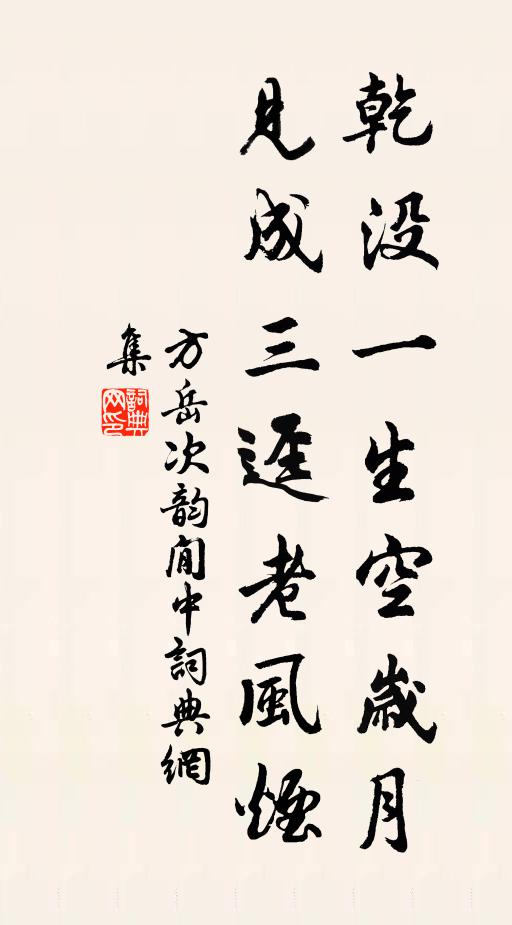 乾没一生空歲月
見成三逕老風煙
方岳次韵閒中詞典網
集
詞典网印